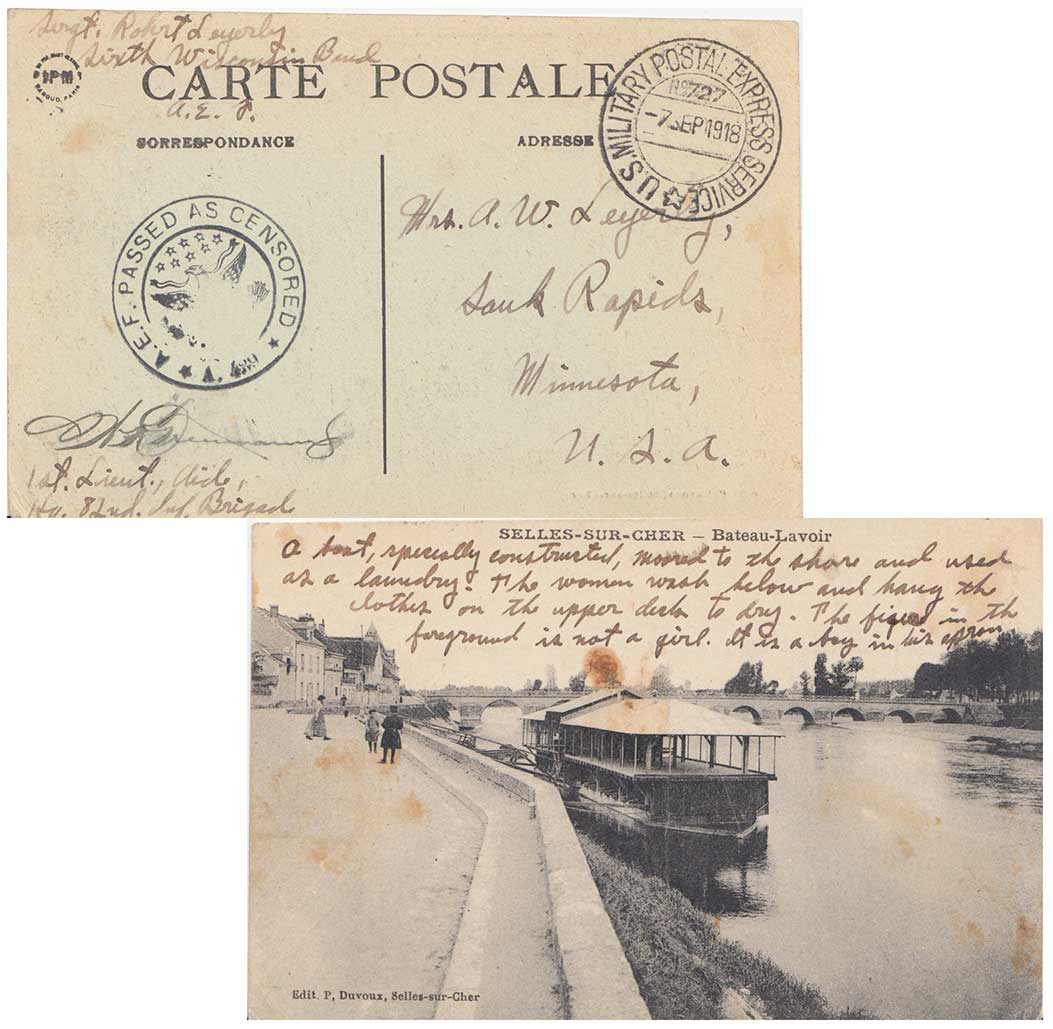 Sergt. Robert Leyerly
Sixth Wisconsin Band
A. E. F.
CARTE POSTALE
CORRESPONDANCE
ADRESSE
IPM
BAROUD, PARIS
U.S. MILITARY POSTAL EXPRESS SERVICE
No 727
-7 SEP 1918
A.E.F. PASSED AS CENSORED
Mrs. A. W. Leyerly,
Sauk Rapids,
Minnesota,
U. S. A.
1st. Lieut., Aide,
Hq. 82nd. Inf. Brigade
SELLES-SUR-CHER — Bateau-Lavoir
A boat, specially constructed, moored to the shore and used
as a laundry. The women wash below and hang the
clothes on the upper deck to dry. The figure in the
foreground is not a girl. It is a boy in his apron
Edit. P, Duvoux, Selles-sur-Cher